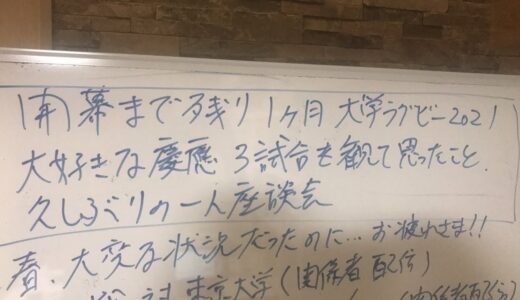 開幕まで残り1ヶ月 大学ラグビー2021
大好きな慶應 3試合を観て思ったこと.
久しぶりの一人座談会
春、大変な状況だったのに… お疲れさま!!
対 東京大学(関係者配信)
(関係者配信)